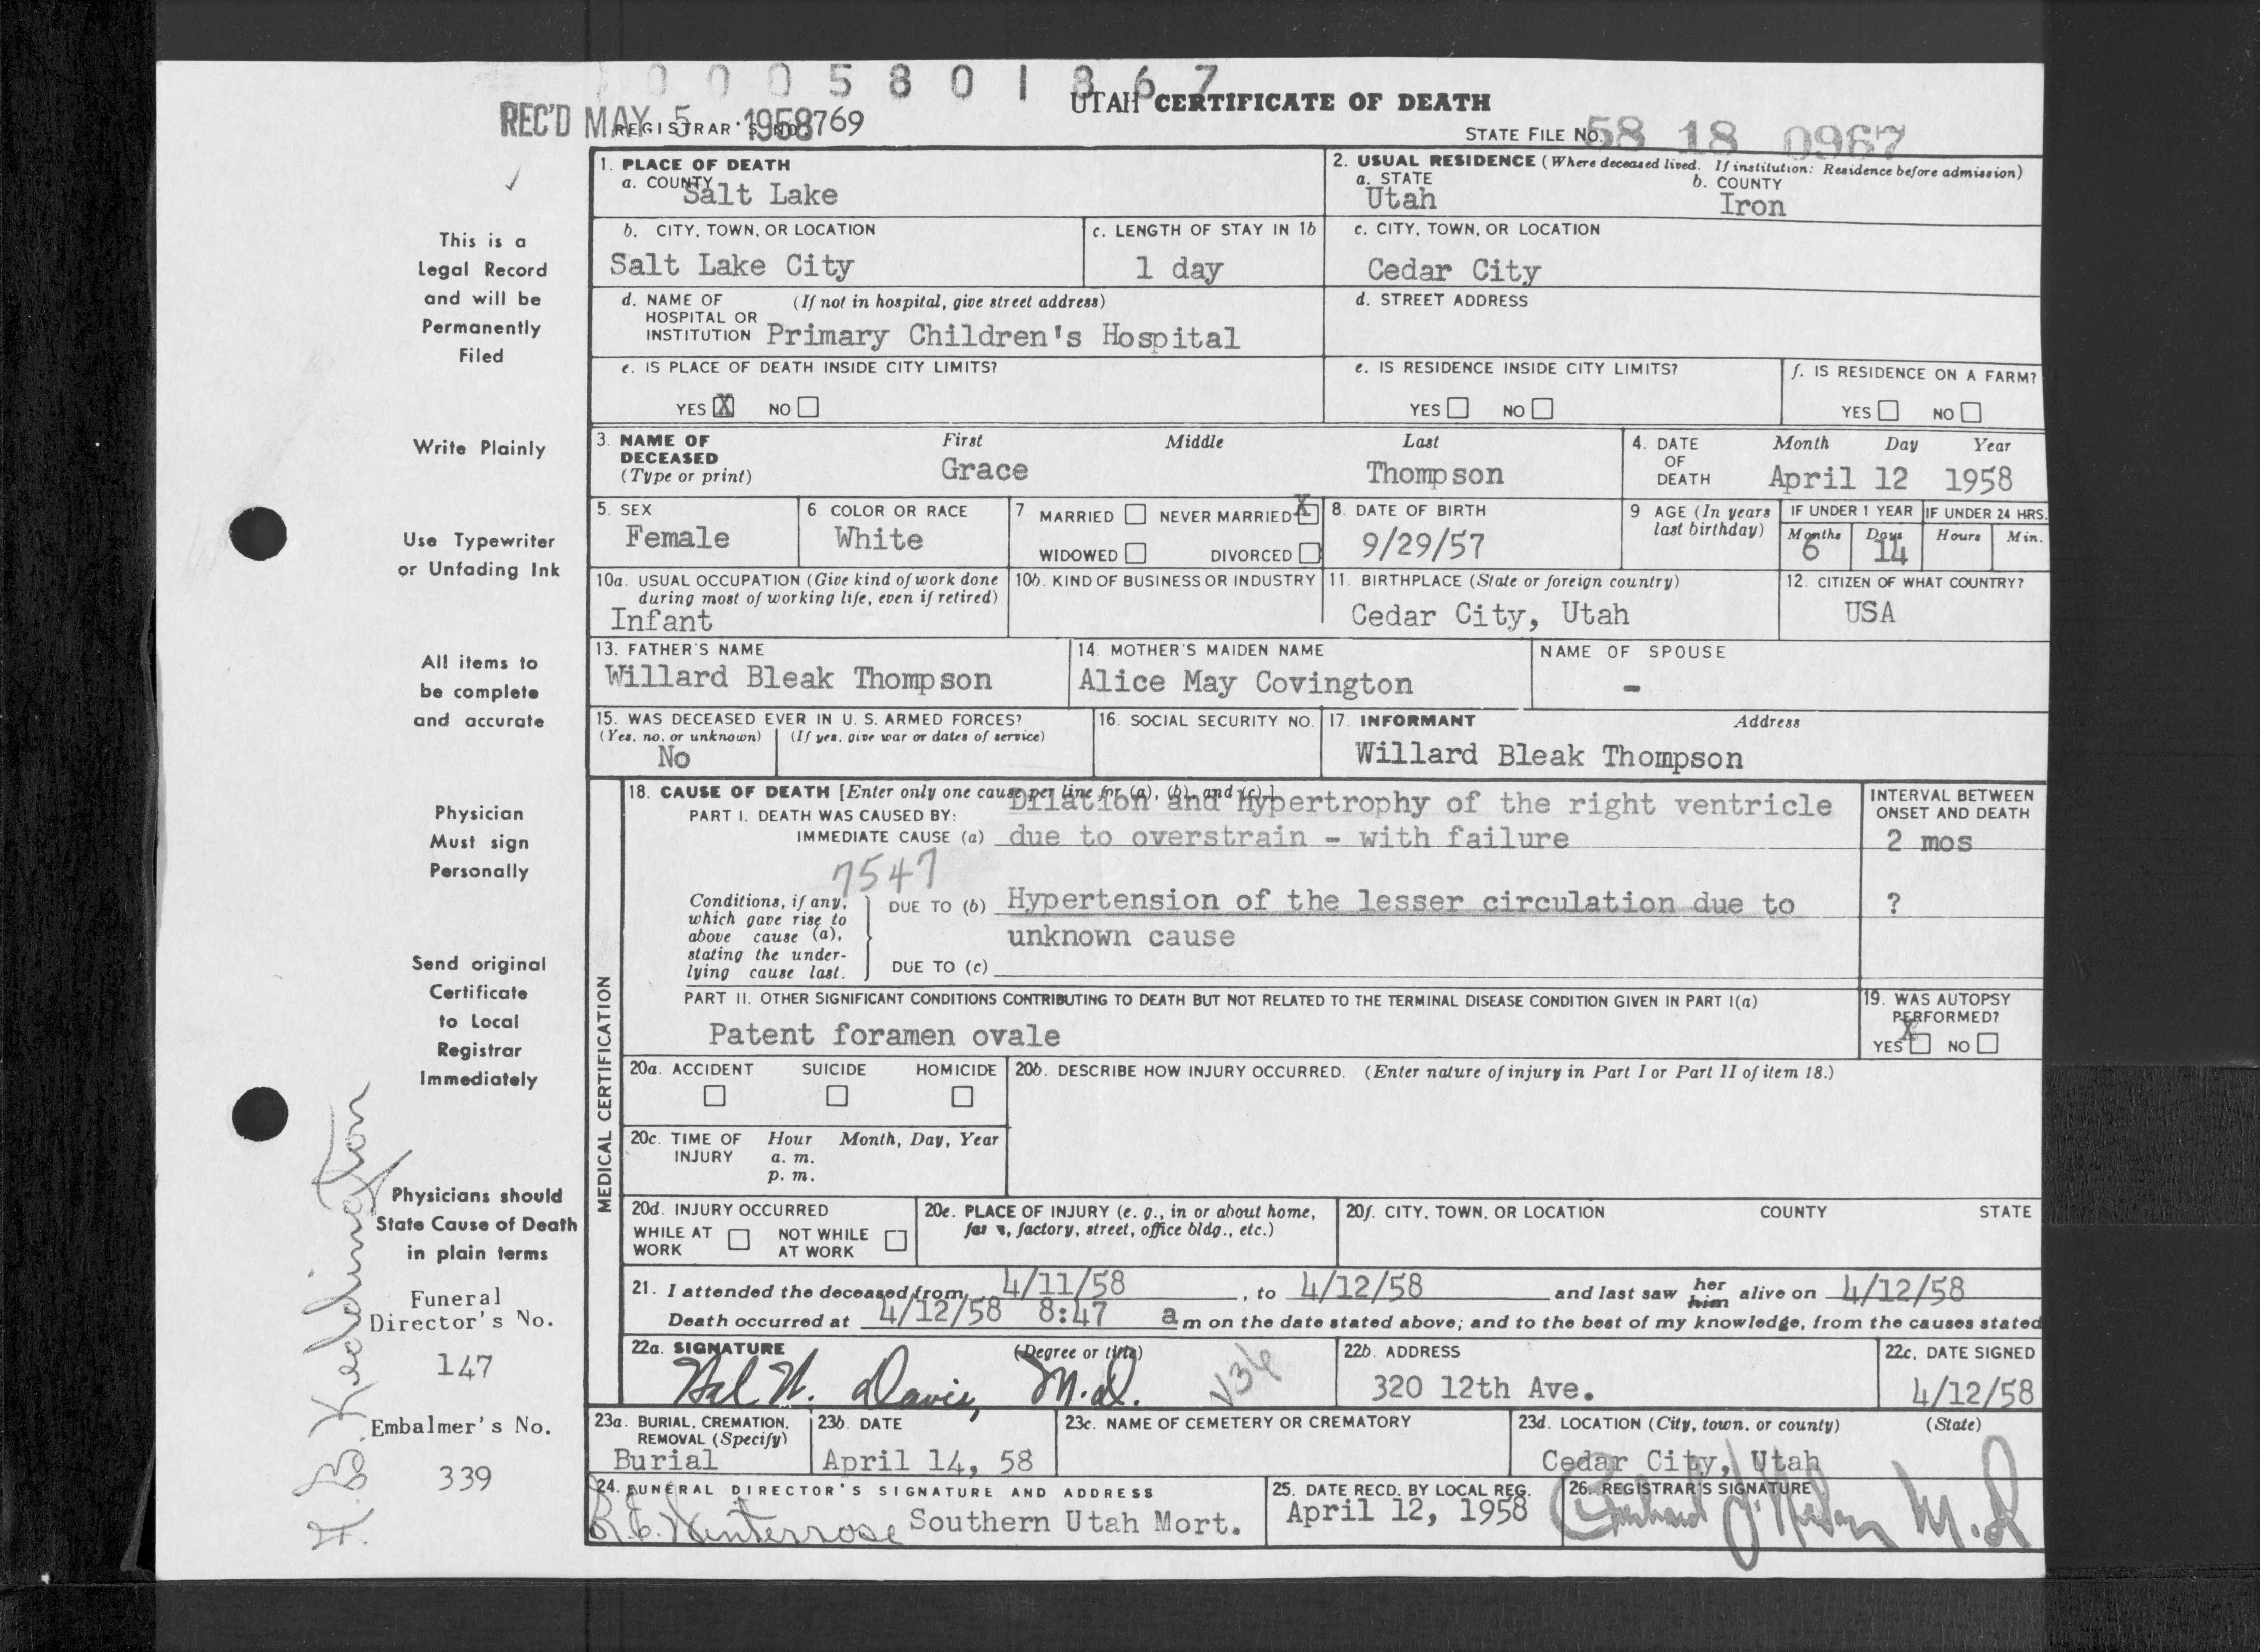 0 0 0 5 8 0 1 8 6 7
UTAH CERTIFICATE OF DEATH
REC'D MAY 5 1958
REGISTRAR'S NO. 769
STATE FILE No. 58 18 0967
1. PLACE OF DEATH
a. COUNTY
Salt Lake
2. USUAL RESIDENCE (Where deceased lived. If institution: Residence before admission)
a. STATE
b. COUNTY
Utah
Iron
b. CITY, TOWN, OR LOCATION
Salt Lake City
c. LENGTH OF STAY IN 1b
1 day
c. CITY, TOWN, OR LOCATION
Cedar City
d. NAME OF (If not in hospital, give street address)
HOSPITAL OR
INSTITUTION Primary Children's Hospital
d. STREET ADDRESS
e. IS PLACE OF DEATH INSIDE CITY LIMITS?
YES X NO
e. IS RESIDENCE INSIDE CITY LIMITS?
YES NO
f. IS RESIDENCE ON A FARM?
YES NO
3. NAME OF DECEASED
(Type or print)
First Middle Last
Grace Thompson
4. DATE OF DEATH
Month Day Year
April 12 1958
5. SEX
Female
6 COLOR OR RACE
White
7 MARRIED NEVER MARRIED X
WIDOWED DIVORCED
8. DATE OF BIRTH
9/29/57
9 AGE (In years
last birthday)
IF UNDER 1 YEAR
Months Days
6 14
IF UNDER 24 HRS.
Hours Min.
10a. USUAL OCCUPATION (Give kind of work done
during most of working life, even if retired)
Infant
10b. KIND OF BUSINESS OR INDUSTRY
11. BIRTHPLACE (State or foreign country)
Cedar City, Utah
12. CITIZEN OF WHAT COUNTRY?
USA
13. FATHER'S NAME
Willard Bleak Thompson
14. MOTHER'S MAIDEN NAME
Alice May Covington
NAME OF SPOUSE
-
15. WAS DECEASED EVER IN U. S. ARMED FORCES?
(Yes, no, or unknown) (If yes, give war or dates of service)
No
16. SOCIAL SECURITY NO.
17. INFORMANT Address
Willard Bleak Thompson
MEDICAL CERTIFICATION
18. CAUSE OF DEATH [Enter only one cause per line for (a), (b), and (c).]
PART I. DEATH WAS CAUSED BY:
Dilation and Hypertrophy of the right ventricle
IMMEDIATE CAUSE (a) due to overstrain - with failure
INTERVAL BETWEEN
ONSET AND DEATH
2 mos
7547
Conditions, if any,
which gave rise to
above cause (a),
stating the under-
lying cause last.
DUE TO (b) Hypertension of the lesser circulation due to
unknown cause
?
DUE TO (c)
PART II. OTHER SIGNIFICANT CONDITIONS CONTRIBUTING TO DEATH BUT NOT RELATED TO THE TERMINAL DISEASE CONDITION GIVEN IN PART I(a)
Patent foramen ovale
19. WAS AUTOPSY
PERFORMED?
YES X NO
20a. ACCIDENT SUICIDE HOMICIDE
20b. DESCRIBE HOW INJURY OCCURRED. (Enter nature of injury in Part I or Part II of item 18.)
20c. TIME OF INJURY
Hour Month, Day, Year
a. m.
p. m.
20d. INJURY OCCURRED
WHILE AT WORK
NOT WHILE AT WORK
20e. PLACE OF INJURY (e. g., in or about home,
factory, street, office bldg., etc.)
20f. CITY, TOWN, OR LOCATION COUNTY STATE
21. I attended the deceased from 4/11/58, to 4/12/58 and last saw her him alive on 4/12/58
Death occurred at 4/12/58 8:47 a m on the date stated above; and to the best of my knowledge, from the causes stated
22a. SIGNATURE (Degree or title)
Hal N. Davis, M.D.
V36
22b. ADDRESS
320 12th Ave.
22c. DATE SIGNED
4/12/58
23a. BURIAL, CREMATION,
REMOVAL (Specify)
Burial
23b. DATE
April 14, 58
23c. NAME OF CEMETERY OR CREMATORY
23d. LOCATION (City, town, or county) (State)
Cedar City, Utah
24. FUNERAL DIRECTOR'S SIGNATURE AND ADDRESS
Winterrose Southern Utah Mort.
25. DATE RECD. BY LOCAL REG.
April 12, 1958
26. REGISTRAR'S SIGNATURE
M.D
This is a
Legal Record
and will be
Permanently
Filed
Write Plainly
Use Typewriter
or Unfading Ink
All items to
be complete
and accurate
Physician
Must sign
Personally
Send original
Certificate
to Local
Registrar
Immediately
Physicians should
State Cause of Death
in plain terms
Funeral
Director's No.
147
Embalmer's No.
339